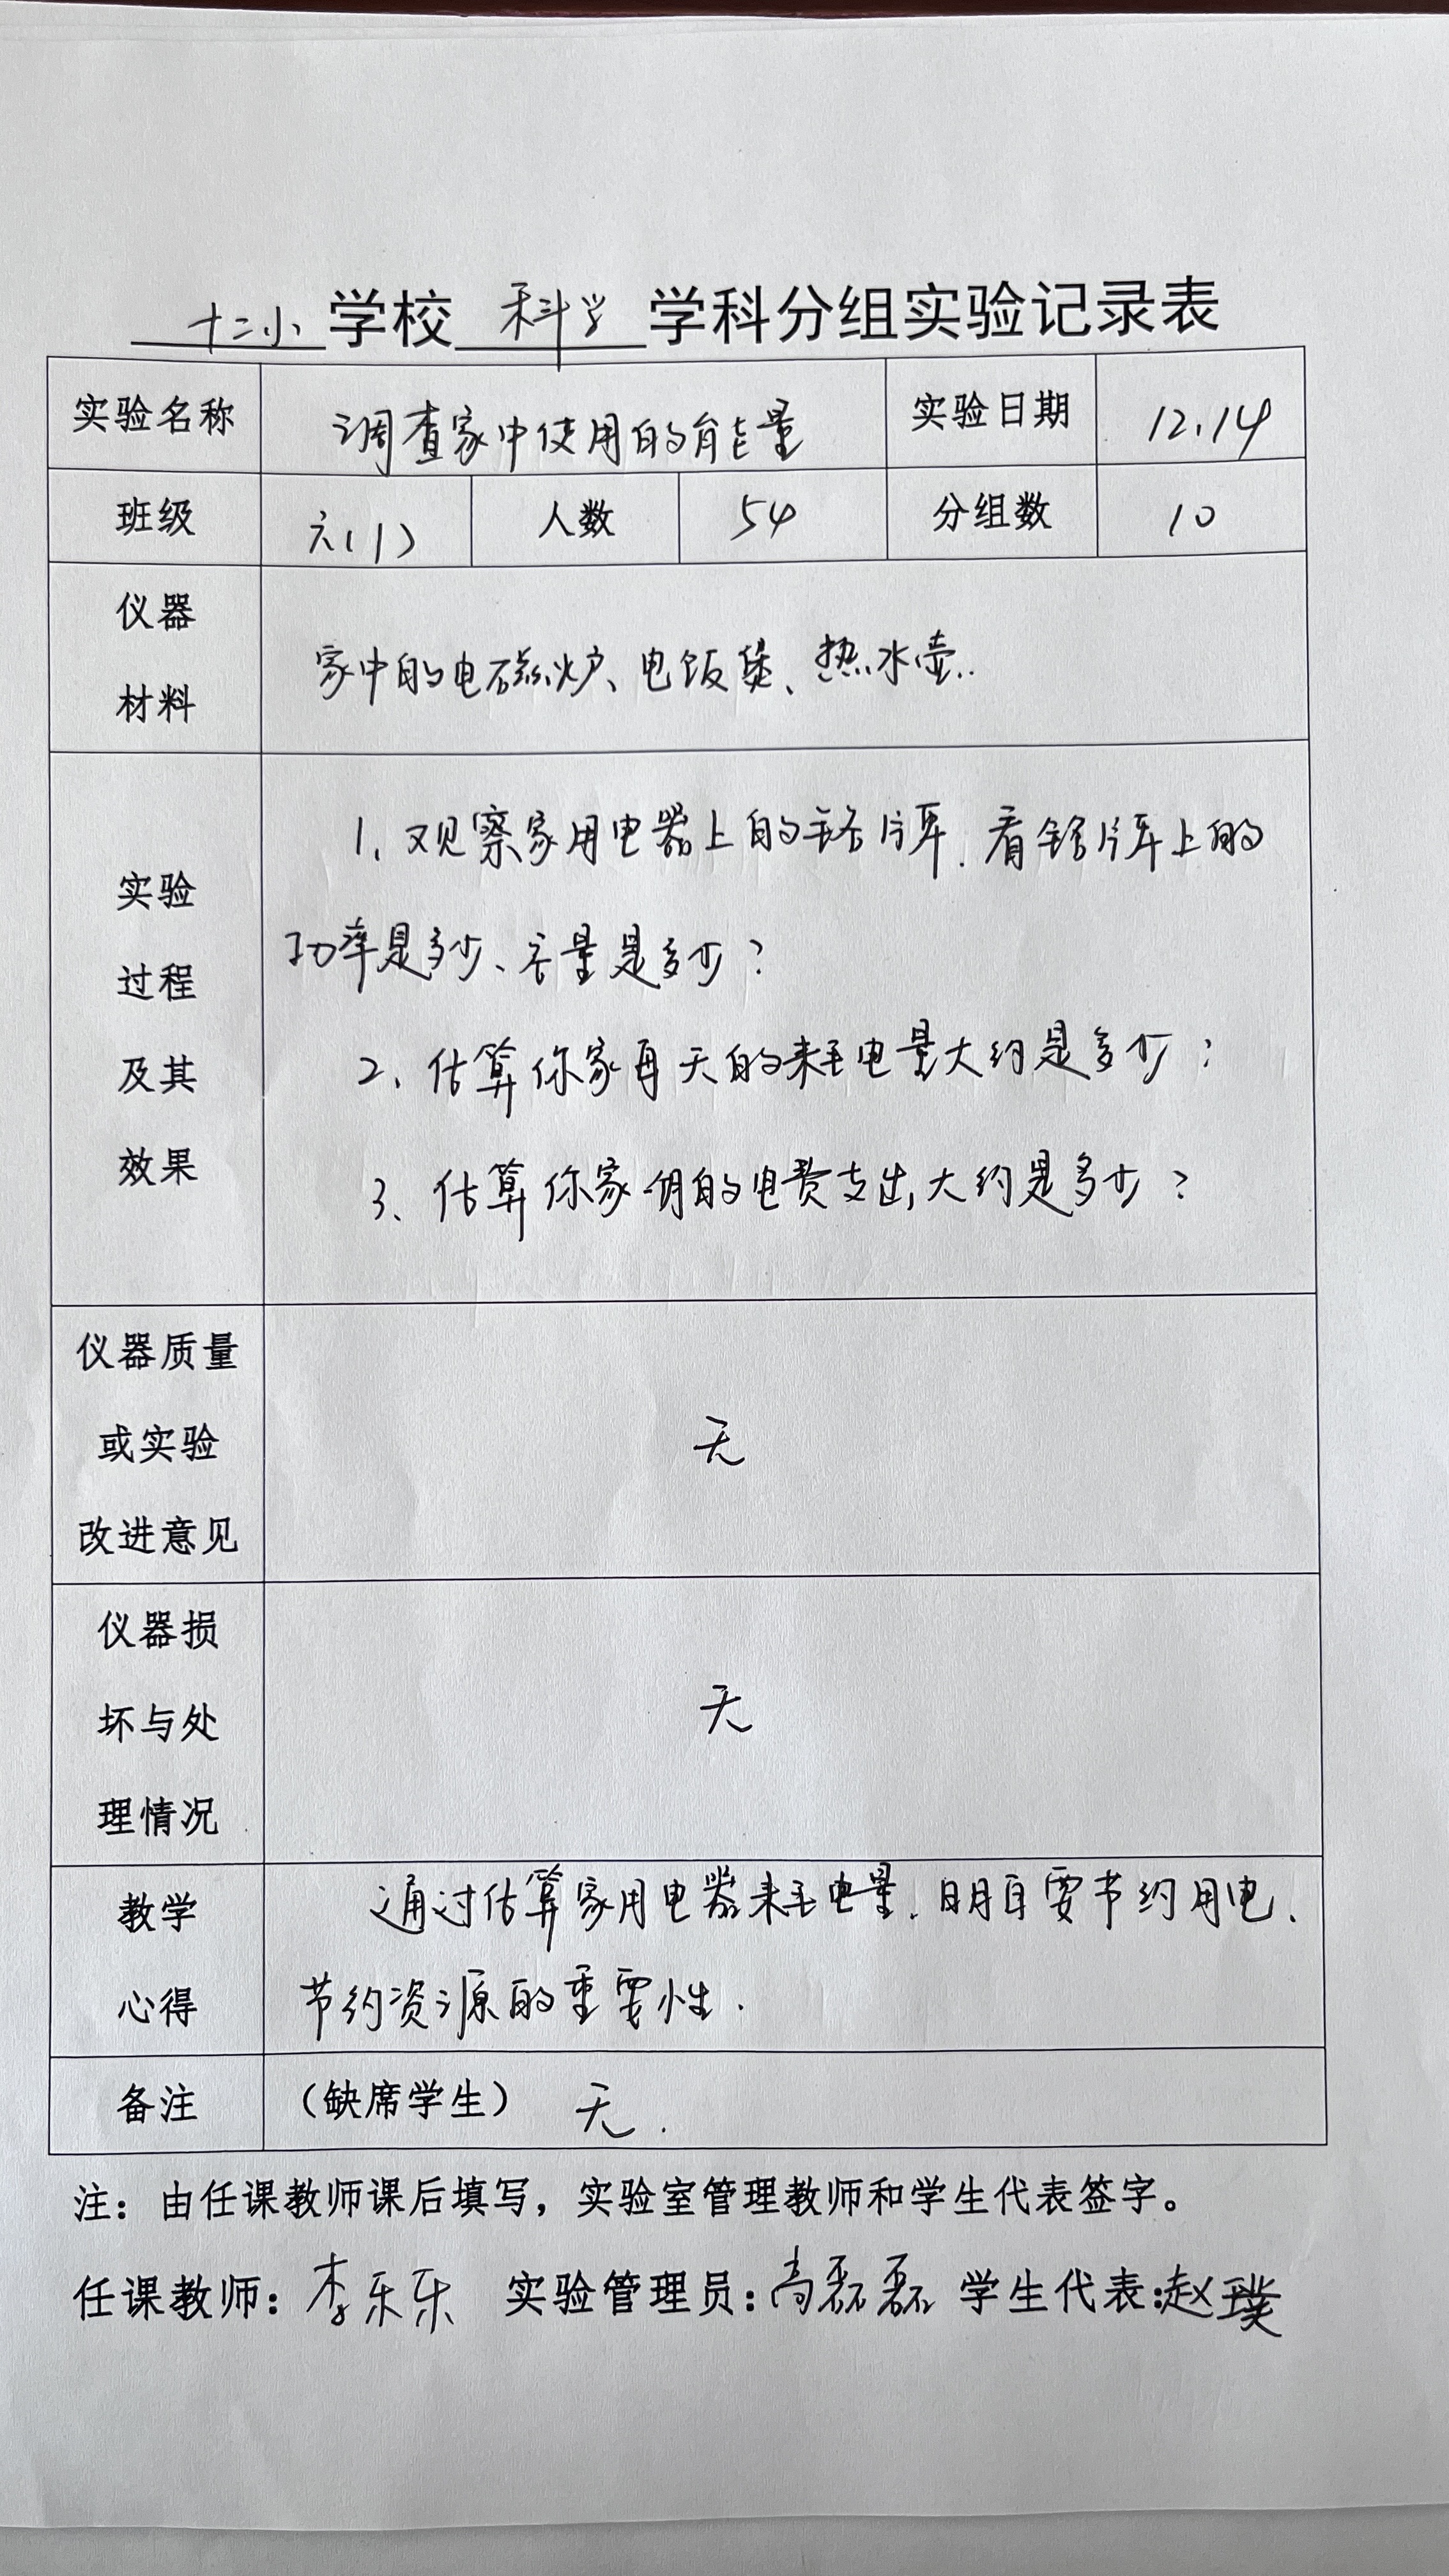 十二小学校科学学科分组实验记录表
实验名称 调查家中使用的能量 实验日期 12.14
班级 六(1) 人数 54 分组数 10
仪器
材料
家中的电磁炉、电饭煲、热水壶..
实验
过程
及其
效果
1、观察家用电器上的铭牌,看铭牌上的
功率是多少、容量是多少?
2、估算你家每天的耗电量大约是多少?
3、估算你家一月的电费支出大约是多少?
仪器质量
或实验
改进意见
无
仪器损
坏与处
理情况
无
教学
心得
通过估算家用电器耗电量,明白要节约用电、
节约资源的重要性.
备注 (缺席学生) 无.
注:由任课教师课后填写,实验室管理教师和学生代表签字。
任课教师:李乐乐 实验管理员:高磊磊 学生代表:赵璞